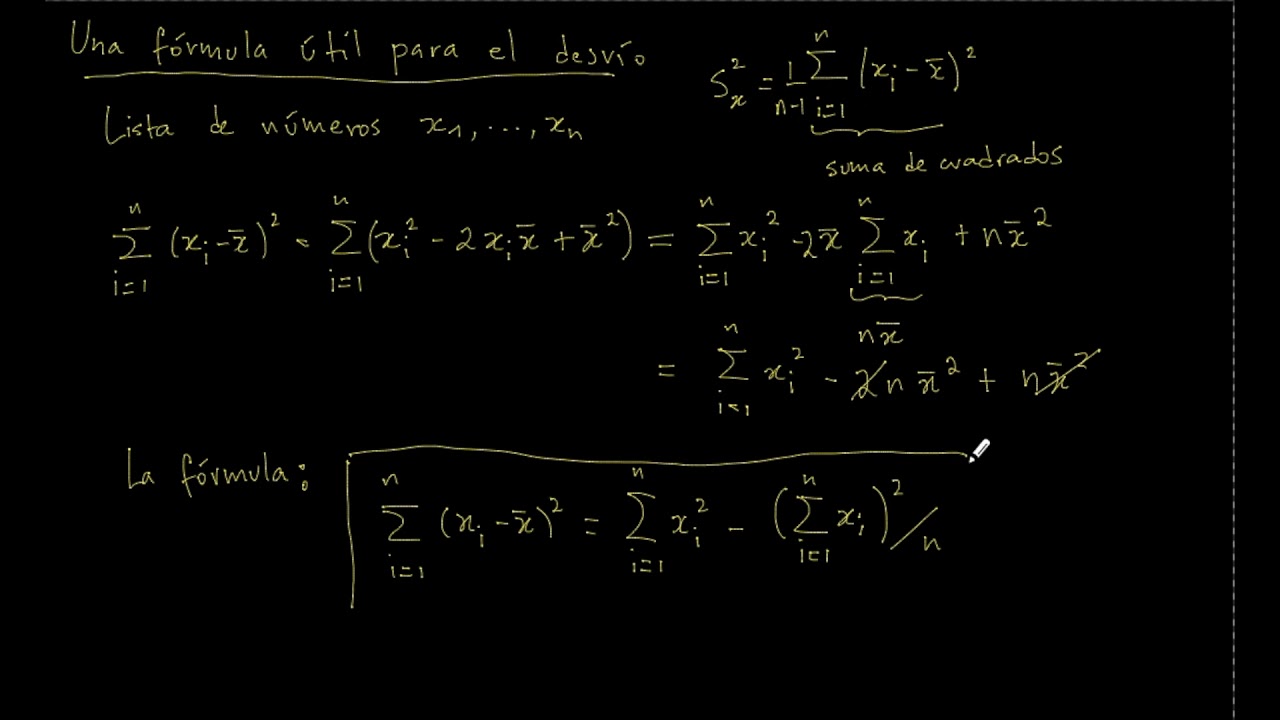 Una fórmula útil para el desvío
S_x^2 = 1/(n-1) Σ_{i=1}^{n} (x_i - x̄)^2
suma de cuadrados
Lista de números x_1, ..., x_n
Σ_{i=1}^{n} (x_i - x̄)^2 = Σ_{i=1}^{n} (x_i^2 - 2x_i x̄ + x̄^2) = Σ_{i=1}^{n} x_i^2 - 2x̄ Σ_{i=1}^{n} x_i + n x̄^2
n x̄
= Σ_{i=1}^{n} x_i^2 - 2n x̄^2 + n x̄^2
La fórmula:
Σ_{i=1}^{n} (x_i - x̄)^2 = Σ_{i=1}^{n} x_i^2 - (Σ_{i=1}^{n} x_i)^2 / n